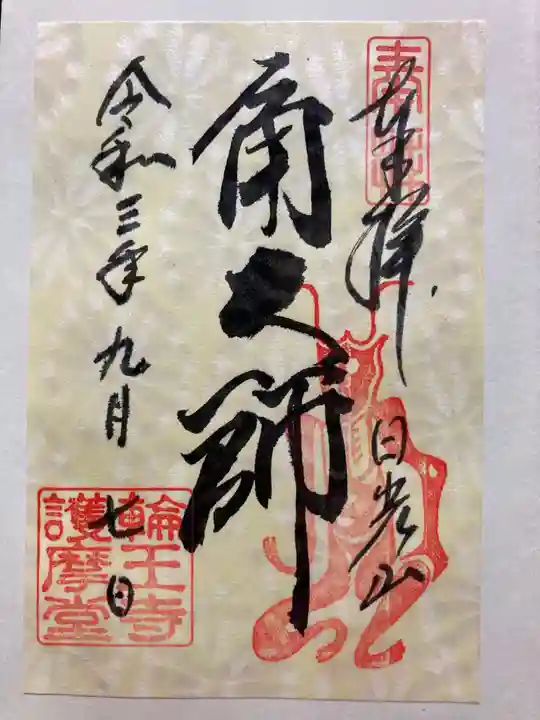 奉拝
日光山
角大師
令和三年九月
七日
輪王寺
護摩堂